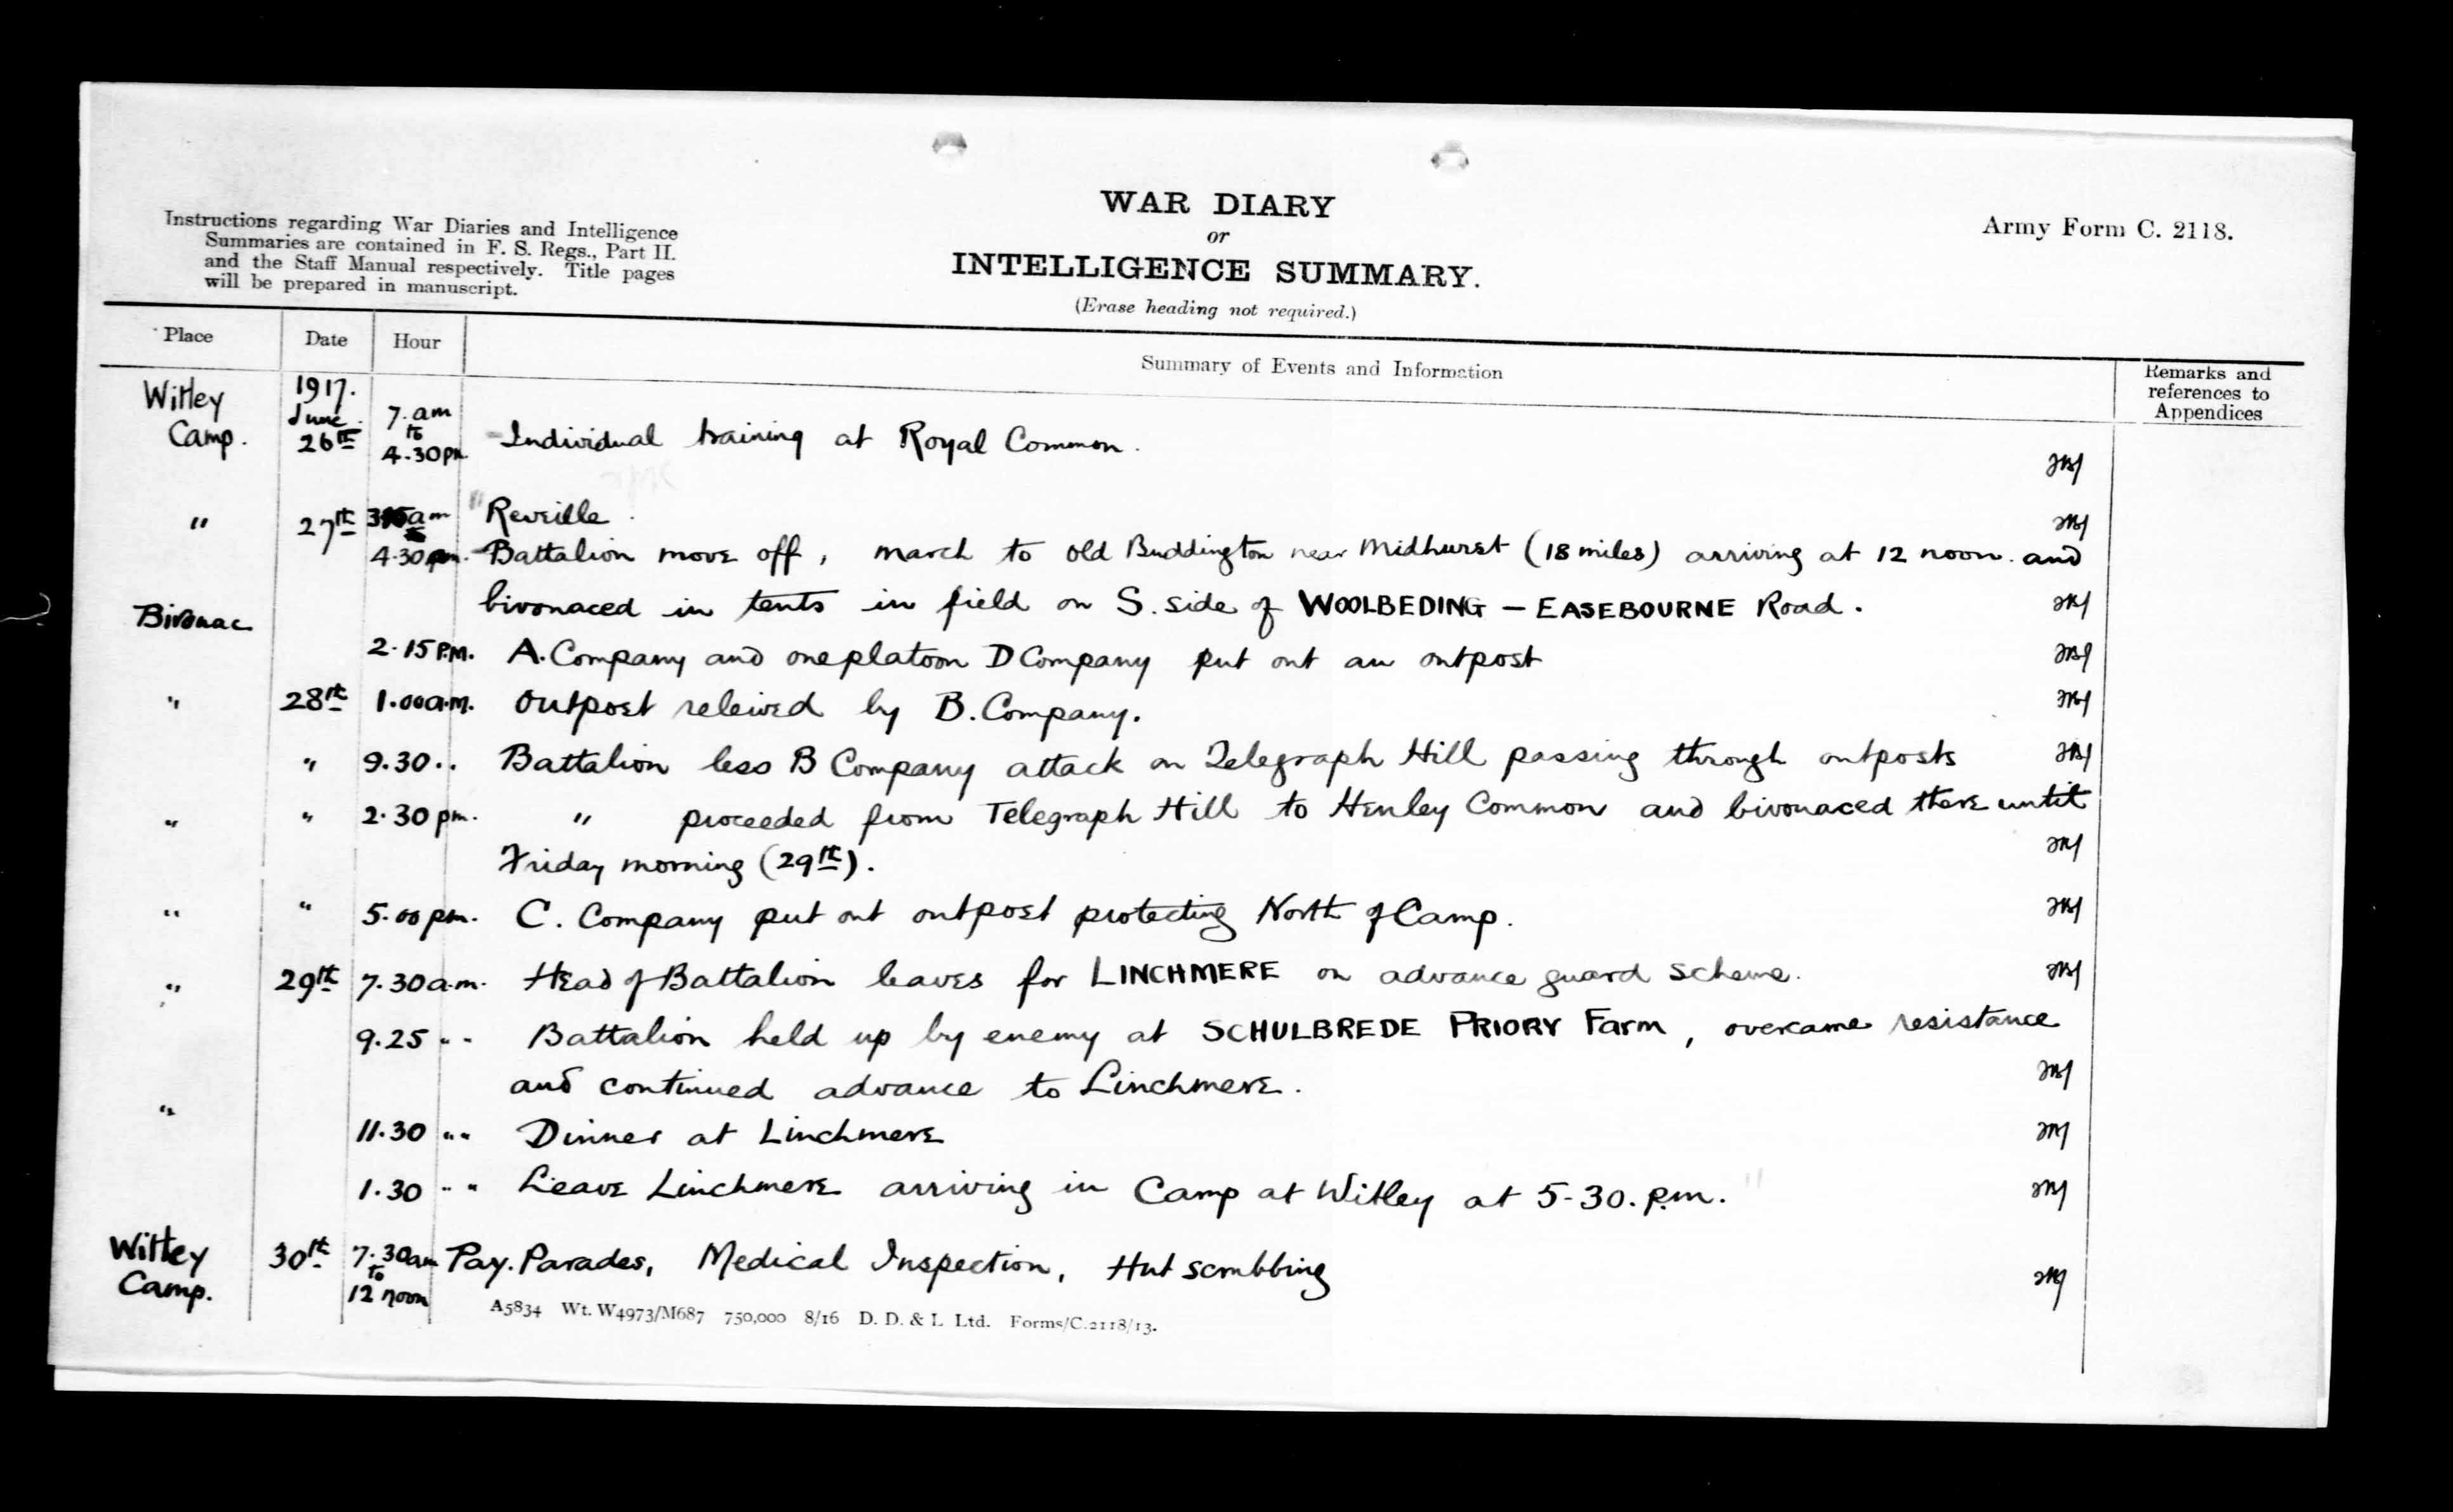 WAR DIARY
or
INTELLIGENCE SUMMARY.
(Erase heading not required.)
Instructions regarding War Diaries and Intelligence
Summaries are contained in F. S. Regs., Part II.
and the Staff Manual respectively. Title pages
will be prepared in manuscript.
Army Form C. 2118.
Place Date Hour Summary of Events and Information Remarks and
references to
Appendices
Witley Camp. 1917. June 26th 7.am to 4.30pm. Individual training at Royal Common.
" 27th am Reveille.
4.30 Battalion move off, march to old Buddington near Midhurst (18 miles) arriving at 12 noon. and
bivouaced in tents in field on S. side of WOOLBEDING – EASEBOURNE Road.
Bivouac
2.15 P.M. A. Company and one platoon D Company put out an outpost
" 28th 1.00a.m. Outpost releived by B. Company.
" 9.30 " Battalion less B Company attack on Telegraph Hill passing through outposts
" " 2.30 pm. " proceeded from Telegraph Hill to Henley Common and bivouaced there until
Friday morning (29th).
" " 5.00 pm. C. Company put out outpost protecting North of Camp.
" 29th 7.30a.m. Head of Battalion leaves for LINCHMERE on advance guard scheme.
9.25 " " Battalion held up by enemy at SCHULBREDE PRIORY Farm, overcame resistance
and continued advance to Linchmere.
"
11.30 " " Dinner at Linchmere
1.30 " " Leave Linchmere arriving in Camp at Witley at 5-30. p.m.
Witley Camp. 30th 7.30am to 12 noon Pay. Parades, Medical Inspection, Hut scrubbing
A5834 Wt. W4973/M687 750,000 8/16 D. D. & L. Ltd. Forms/C.2118/13.